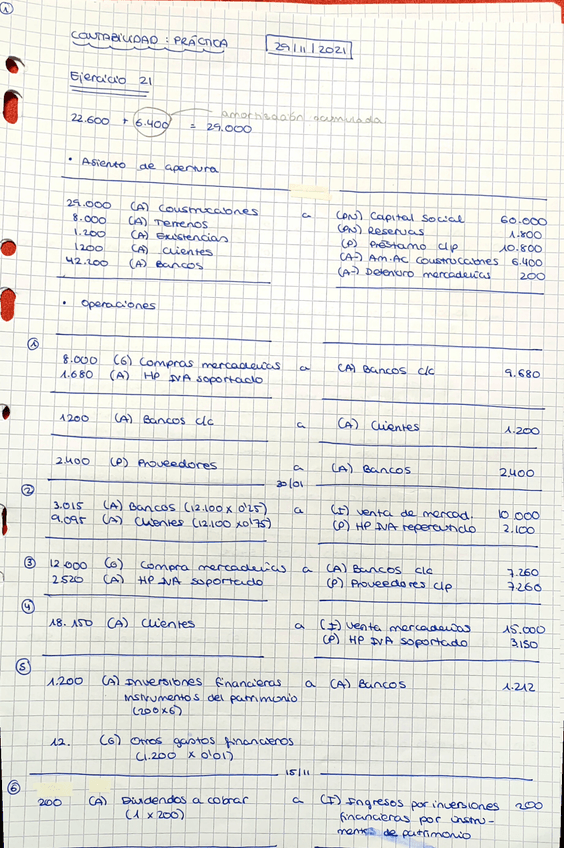 1
CONTABILIDAD : PRÁCTICA 29/11/2021
Ejercicio 21
amortización acumulada
22.600 + 6.400 = 29.000
• Asiento de apertura
29.000 (A) Construcciones a (PN) Capital Social 60.000
8.000 (A) Terrenos (PN) Reservas 1.800
1.200 (A) Existencias (P) Préstamo c/p 10.800
1200 (A) Clientes (A-) Am.Ac Construcciones 6.400
42.200 (A) Bancos (A-) Deterioro mercaderías 200
• Operaciones
1
8.000 (G) Compras mercaderías a (A) Bancos c/c 9.680
1.680 (A) HP IVA soportado
1200 (A) Bancos c/c a (A) Clientes 1.200
2.400 (P) Proveedores a (A) Bancos 2400
30/01
2
3.015 (A) Bancos (12.100 x 0'25) a (I) Venta de mercad. 10.000
9.095 (A) Clientes (12.100 x 0'75) (P) HP IVA repercutido 2.100
3 12.000 (G) Compra mercaderías a (A) Bancos c/c 7.260
2520 (A) HP IVA soportado (P) Proveedores c/p 7260
4
18.150 (A) Clientes a (I) Venta mercaderías 15.000
(P) HP IVA soportado 3.150
5
1.200 (A) Inversiones financieras a (A) Bancos 1.212
instrumentos del patrimonio
(200x6)
12. (G) Otros gastos financieros
(1.200 x 0'01)
15/11
6
200 (A) Dividendos a cobrar a (I) Ingresos por inversiones 200
(1 x 200) financieras por instru-
mentos de patrimonio